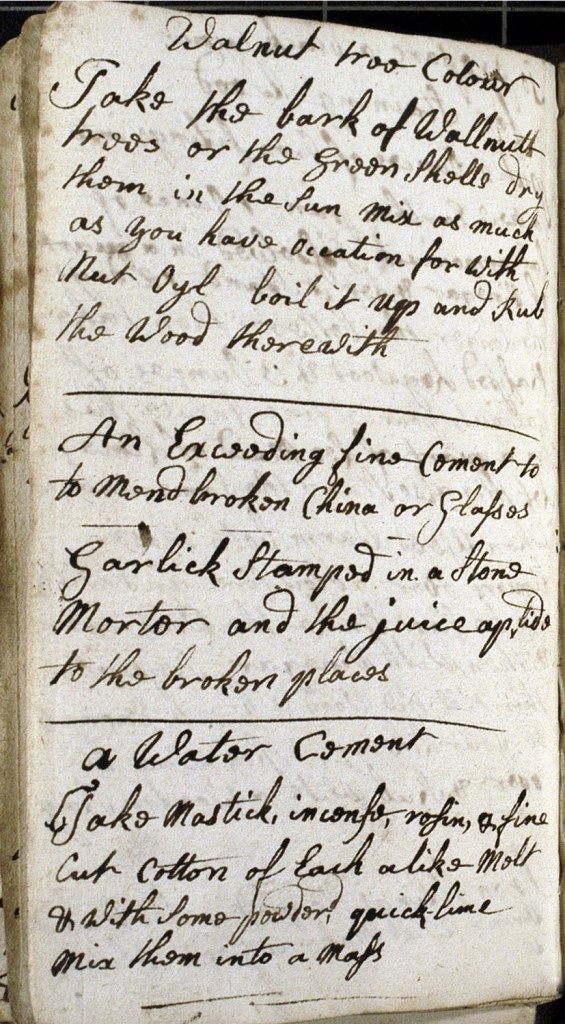 Walnut tree Colour
Take the bark of Wallnutt
trees or the Green Shells dry
them in the Sun Mix as much
as you have occation for with
Nut Oyl boil it up and Rub
the Wood therewith
An Exceeding fine Cement to
to Mend broken China or Glasses
Garlick Stamped in a Stone
Morter and the juice ap,lide
to the broken places
a Water Cement
Take Mastick, incense, rosin, & fine
Cut Cotton of Each alike Melt
& with Some powder'd quick-lime
Mix them into a Mass